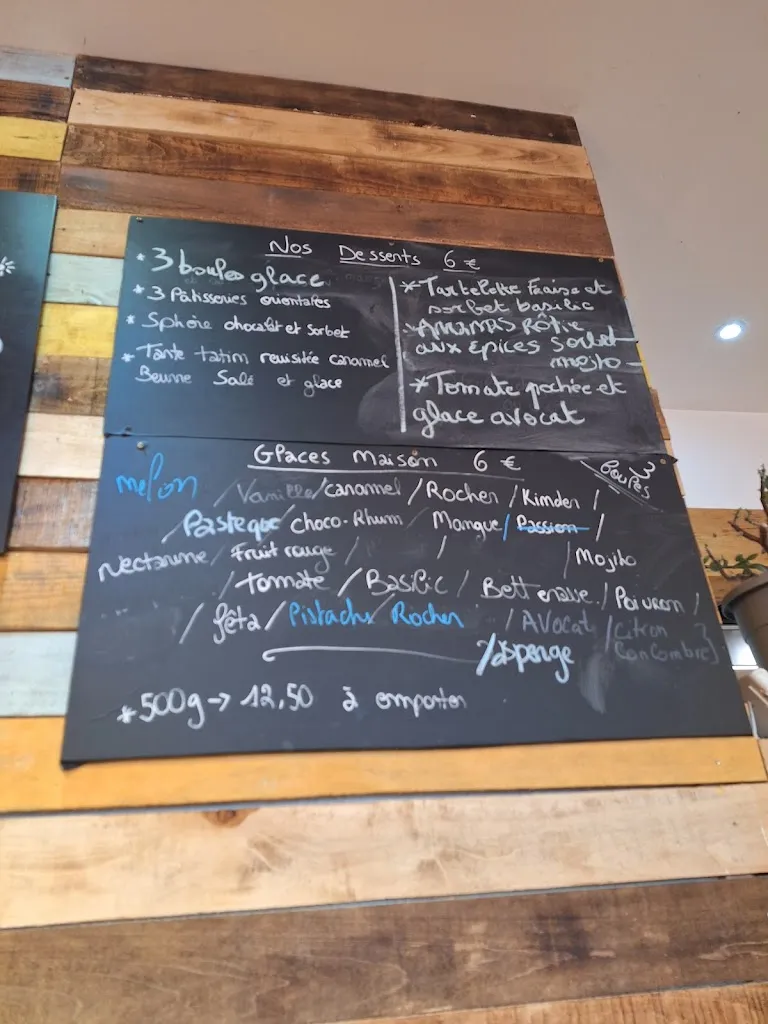 Nos Desserts 6 €
* 3 boules glace
* 3 Pâtisseries orientales
* Sphère chocolat et sorbet
* Tarte tatin revisitée caramel
Beurre Salé et glace
* Tartelette Fraise et
sorbet basilic
ANANAS RÔTIE
aux Epices Sorbet
mojito
* Tomate pochée et
glace avocat
Glaces Maison 6 €
3 Boules
melon / Vanille / caramel / Rocher / Kinder /
/ Pasteque / choco-Rhum / Mangue / Passion /
Nectarine / Fruit rouge / / / Mojito
/ tomate / Basilic / Betterave / Poivron /
/ fêta / Pistache / Rocher / AVOCAT / Citron
Concombre
/ asperge
* 500g → 12,50 à emporter